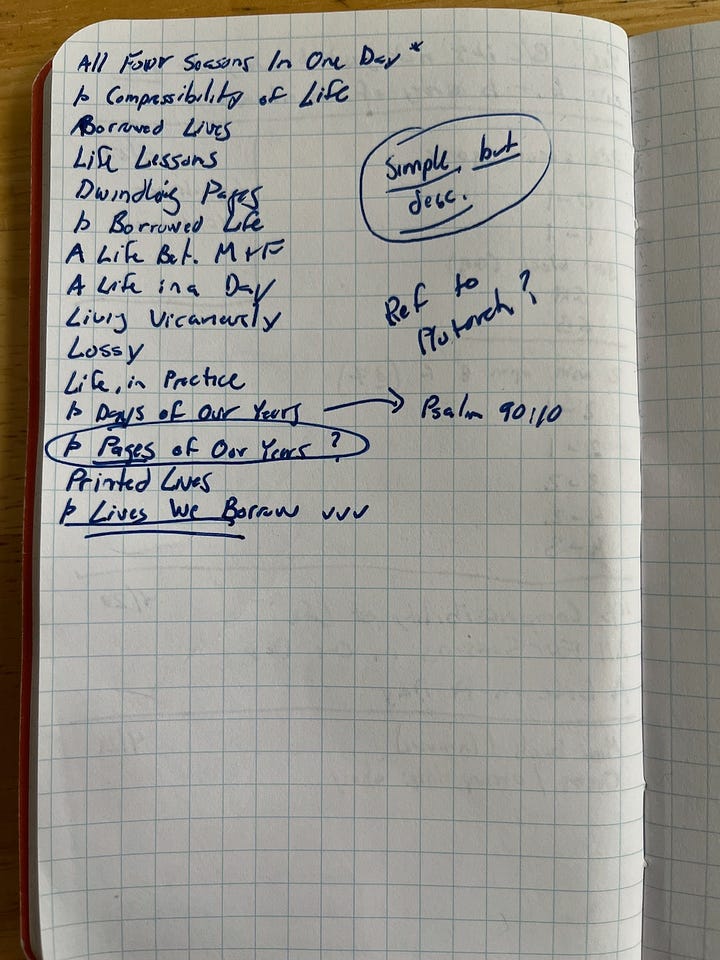 All Four Seasons In One Day *
þ Compressibility of Life
Borrowed Lives
Life Lessons
Dwindling Pages
þ Borrowed Life
A Life Bet. M + F
A Life in a Day
Livig Vicariously
Lossy
Life, in Practice
þ Days of Our Years → Psalm 90:10
þ Pages of Our Years ?
Printed Lives
þ Lives We Borrow ✓✓✓
Simple but
desc.
Ref to
Plutarch?